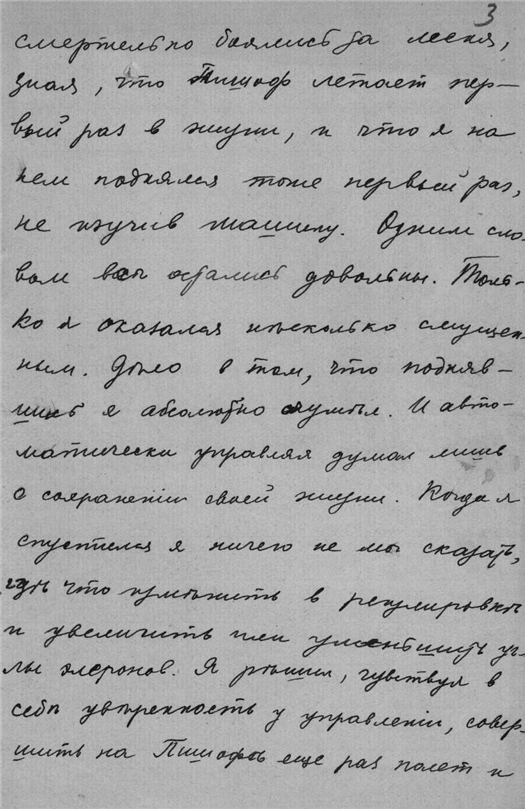 3
смертельно боялись за меня,
зная, что Пишоф летает пер-
вый раз в жизни, и что я на
нем поднялся тоже первый раз,
не изучив машину. Одним сло-
вом всѣ остались довольны. Толь-
ко я оказался нѣсколько смущен-
ным. Дѣло в том, что подняв-
шись я абсолютно
матически управляя думал лишь
о сохраненіи своей жизни. Когда я
спустился я ничего не мог сказать,
гдѣ что измѣнить в регулировкѣ
и увеличить или уменьшить уг-
лы элеронов. Я рѣшил, чувствуя в
себѣ увѣренность у управленіи, совер-
шить на Пишофѣ еще раз полет и